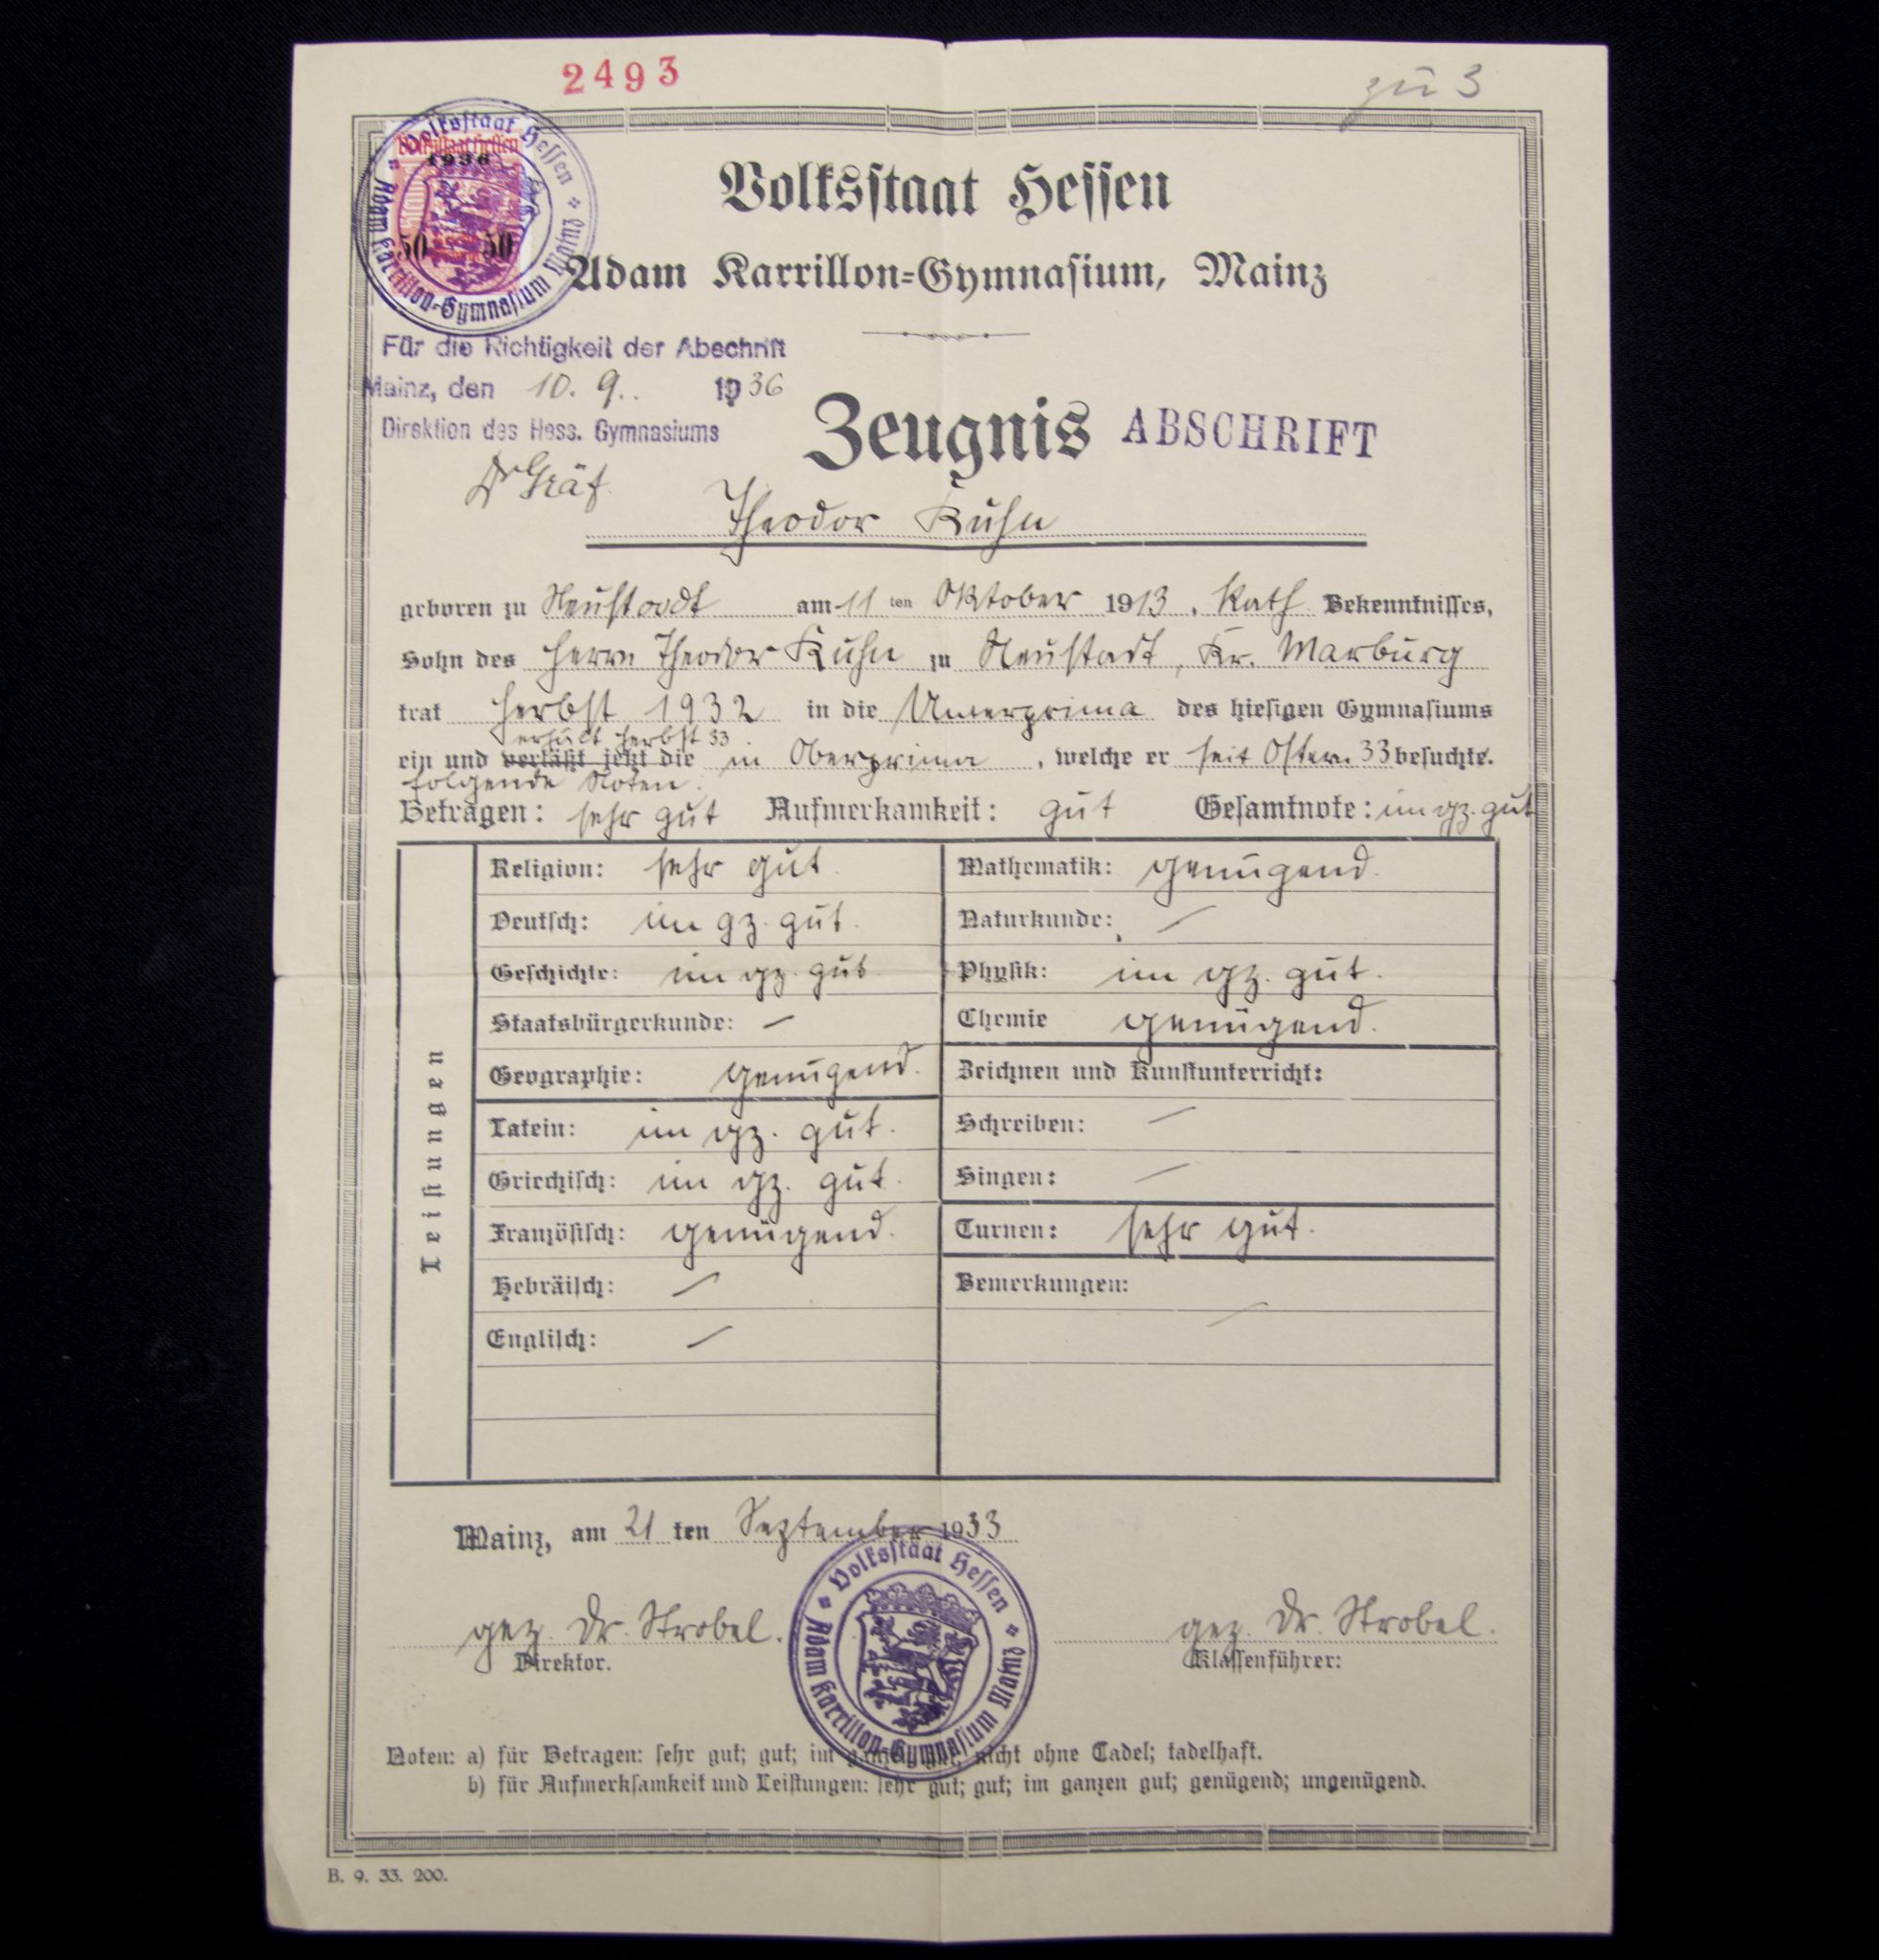 2493
zu 3
Volksstaat Hessen
1936
50 50
Adam Karrillon-Gymnasium Mainz
Volksstaat Hessen
Adam Karrillon=Gymnasium, Mainz
Für die Richtigkeit der Abschrift
Mainz, den 10. 9.. 1936
Direktion des Hess. Gymnasiums
Dr Gräf.
Zeugnis ABSCHRIFT
Theodor Kuhn
geboren zu Neustadt am 11 ten Oktober 1913, Kath. Bekenntnisses,
Sohn des Herrn Theodor Kuhn zu Neustadt, Kr. Marburg
trat Herbst 1932 in die Unterprima des hiesigen Gymnasiums
erhält Herbst 33
ein und verläßt jetzt die in Oberprima, welche er seit Ostern 33 besuchte.
folgende Noten:
Betragen: sehr gut Aufmerkamkeit: gut Gesamtnote: im gz. gut
Leistungen
Religion: sehr gut.
Deutsch: im gz. gut.
Geschichte: im gz. gut.
Staatsbürgerkunde: —
Geographie: genügend.
Latein: im gz. gut.
Griechisch: im gz. gut.
Französisch: genügend.
Hebräisch: —
Englisch: —
Mathematik: genügend.
Naturkunde: —
Physik: im gz. gut.
Chemie genügend.
Zeichnen und Kunstunterricht:
Schreiben: —
Singen: —
Turnen: sehr gut.
Bemerkungen: —
Mainz, am 21 ten September 1933
Volksstaat Hessen
Adam Karrillon-Gymnasium Mainz
gez. Dr. Strobel. gez. Dr. Strobel.
Direktor. Klassenführer:
Noten: a) für Betragen: sehr gut; gut; im ganzen gut; nicht ohne Tadel; tadelhaft.
b) für Aufmerksamkeit und Leistungen: sehr gut; gut; im ganzen gut; genügend; ungenügend.
B. 9. 33. 200.